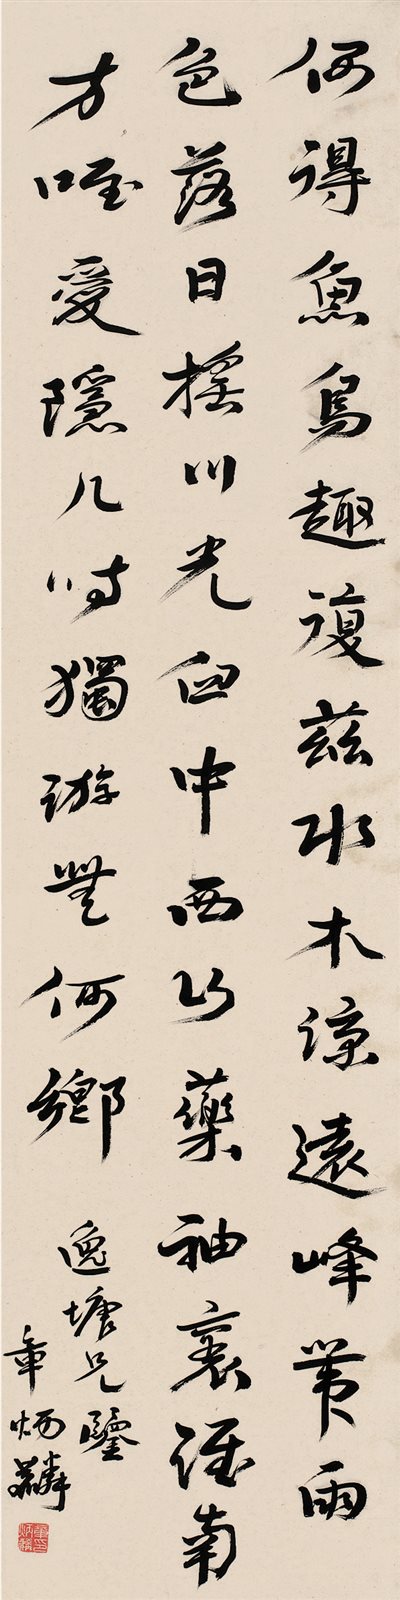 何得魚鳥趣復茲水木涼遠峰帶雨
色落日搖川光臼中西山藥袖裏淮南
方唯愛隱几時獨游無何鄉
逸塘兄鑒
章炳麟